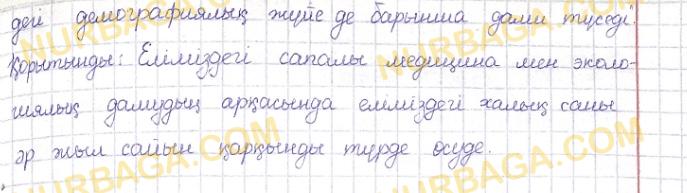 дей демографиялық жүйе де барынша дами түседі.
Қорытынды: Еліміздегі сапалы медицина мен эколо-
гиялық дамудың арқасында еліміздегі халық саны
әр жыл сайын қарқынды түрде өсуде.
NURBAGA.COM